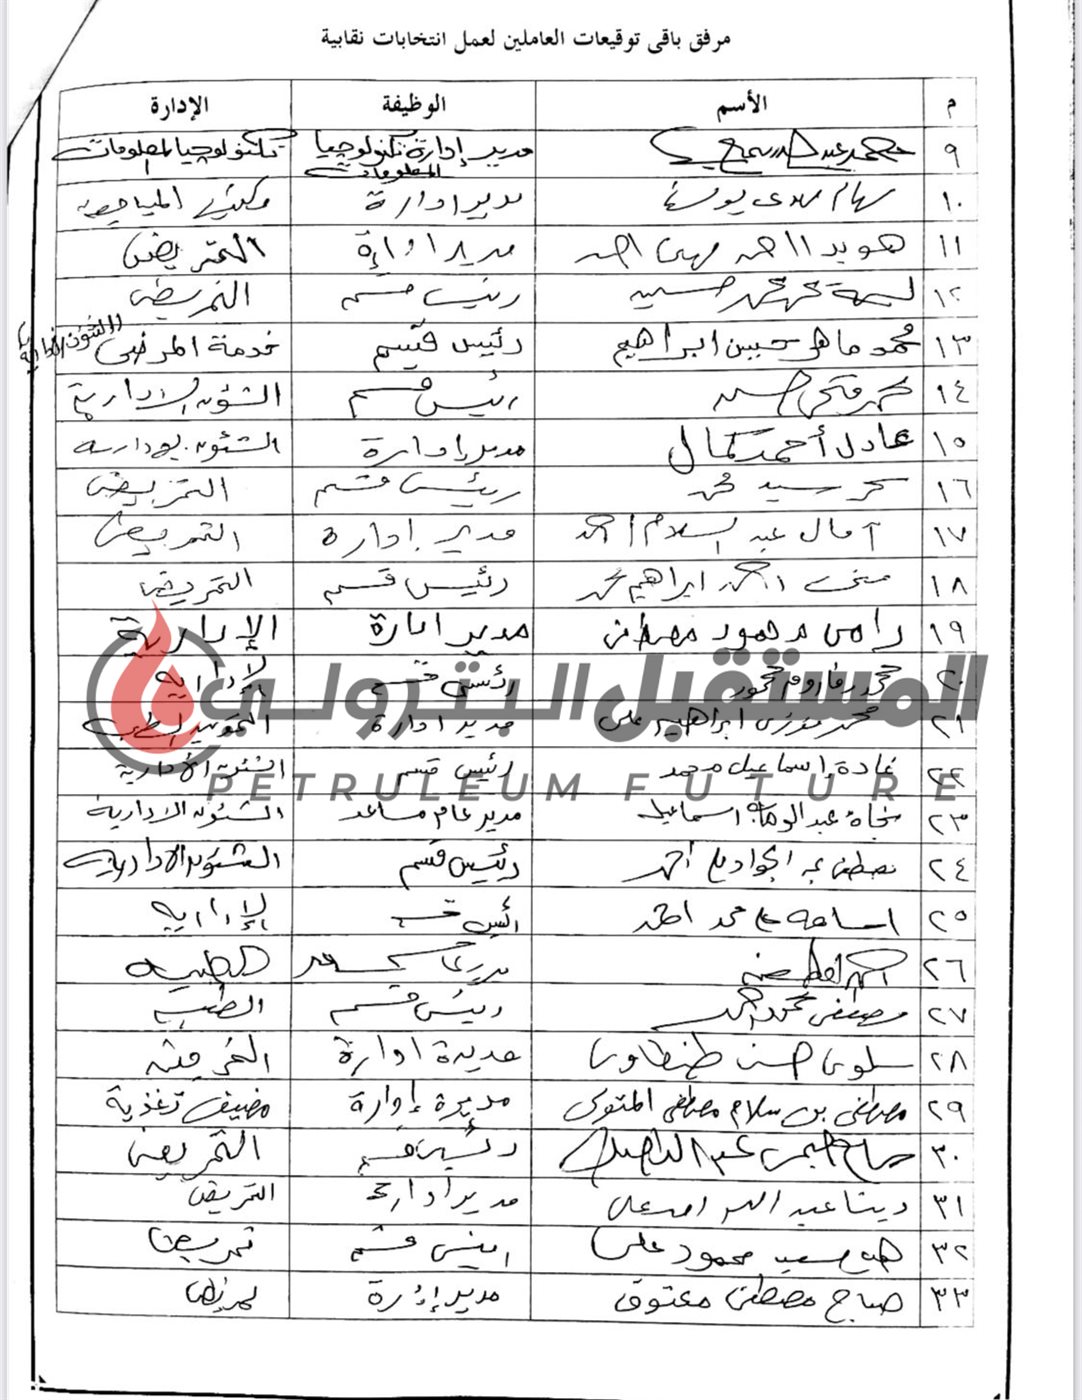 مرفق باقى توقيعات العاملين لعمل انتخابات نقابية
م الأسم الوظيفة الإدارة
٩ محمد عبد مدير إدارة تكنولوجيا المعلومات تكنولوجيا المعلومات
١٠ سهام مهدى يوسف مدير ادارة مكتب
١١ هويدا احمد احمد مدير ادارة التمريض
١٢ محمد رئيس قسم التمريض
١٣ محمد ماهر حسين ابراهيم رئيس قسم خدمة المرضى
١٤ محمد فتحى حسن رئيس قسم الشؤن الادارية
١٥ عادل أحمد كمال مدير إدارة الشئون الادارية
١٦ سحر سيد محمد رئيس قسم التمريض
١٧ آمال عبد السلام احمد مدير إدارة التمريض
١٨ احمد ابراهيم محمد رئيس قسم التمريض
١٩ رامى محمود مصطفى مدير ادارة الإدارية
المستقبل البترولي
٢٠ محمد فاروق محمود رئيس قسم الإدارية
٢١ محمد فوزى ابراهيم على مدير ادارة التموين الطبى
٢٢ غادة إسماعيل محمد رئيس قسم الشئون الأدارية
PETRULEUM FUTURE
٢٣ نجاة عبد الوهاب اسماعيل مدير عام مساعد الشئون الادارية
٢٤ مصطفى عبد الجواد احمد رئيس قسم الشئون الادارية
٢٥ اسامه محمد احمد رئيس قسم الإدارية
٢٦ الطبيه
٢٧ مصطفى محمود احمد رئيس قسم الطبيه
٢٨ سلوى حسن طنطاوى مديرة ادارة
٢٩ مصطفى بن سلام مصطفى المتولى مديرة إدارة مضيف تغذية
٣٠ رئيس قسم التمريض
٣١ دينا عبد الله على مدير ادارة التمريض
٣٢ سعيد محمود على رئيس قسم تمريض
٣٣ صباح مصطفى معتوق مدير إدارة تمريض